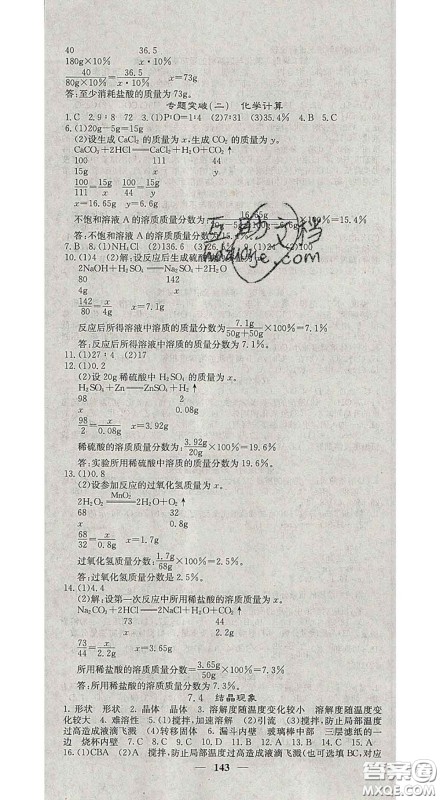 40 36.5
180g×10% x·10%
40/80g×10%=36.5/x·10% x=73g
答:至少消耗盐酸的质量为73g。
专题突破(二) 化学计算
1.C 2.9:8 72 3.(1)P:O=1:4 (2)7:31 (3)35.4% 4.B 5.C
6.(1)20g-5g=15g
(2)设生成CaCl₂的质量为x,生成CO₂的质量为y。
CaCO₃+2HCl=CaCl₂+H₂O+CO₂↑
100 111 44
15g x y
100/15g=111/x 100/15g=44/y
x=16.65g y=6.6g
不饱和溶液A的溶质质量分数为 16.65g ×100%=15.4%
答:不饱和溶液A的溶质质量分数为15.4%
7.B 8.(1)NH₄Cl (2)136.6
10.(1)4 (2)解:设反应后生成硫酸
2NaOH+H₂SO₄=Na₂SO₄+2H₂O
80 142
4g x
142/80=x/4g x=7.1g
反应后所得溶液中溶质的质量分数为7.1g/50g+50g×100%=7.1%
答:反应后所得溶液中溶质的质量分数为7.1%。
11.(1)27:4 (2)17
12.(1)0.2
(2)设20g稀硫酸中H₂SO₄的质量为x。
H₂SO₄+Zn=ZnSO₄+H₂↑
98 2
x 0.08g
98/2=x/0.08g x=3.92g
稀硫酸的溶质质量分数为:3.92g/20g×100%=19.6%
答:实验所用稀硫酸中溶质质量分数为19.6%。
13.(1)0.8
(2)设参加反应的过氧化氢质量为x。
2H₂O₂ MnO₂ 2H₂O+O₂↑
68 32
x 0.8g
68/32=x/0.8g x=1.7g
过氧化氢质量分数:1.7g/68g×100%=2.5%。
答:过氧化氢质量分数是2.5%。
14.(1)4.4
(2)解:设第一次反应中所用稀盐酸的溶质质量为x。
Na₂CO₃+2HCl=2NaCl+H₂O+CO₂↑
73 44
x 2.2g
73/44=x/2.2g x=3.65g
所用稀盐酸的溶质质量分数=3.65g/50g×100%=7.3%
答:所用稀盐酸的溶质质量分数为7.3%。
7.4 结晶现象
1.形状 形状 2.晶体 晶体 3.溶解度随温度变化较小 溶解度随温度变
化较大 4.难溶性 5.(1)搅拌,加速溶解 (2)引流 (3)搅拌,防止局部温度
过高造成液滴飞溅 (4)转移固体 6.漏斗内壁 玻璃棒中部 三层滤纸的一
边 烧杯内壁 7.C 8.C 9.D 10.C 11.D 12.B 13.C 14.B 15.A
16.(1)CBA (2)A 搅拌,防止局部温度过高造成液滴飞溅(也可选填BC,对应
143